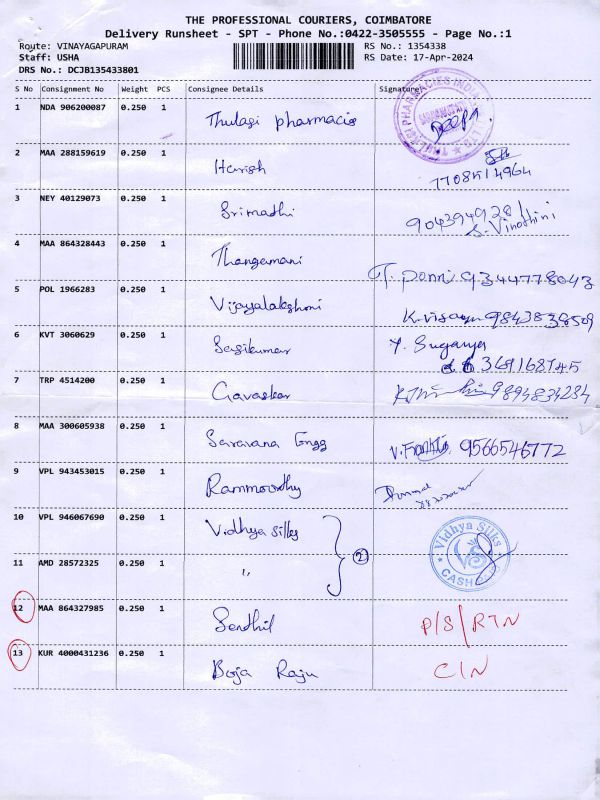 THE PROFESSIONAL COURIERS, COIMBATORE
Delivery Runsheet - SPT - Phone No.:0422-3505555 - Page No.:1
Route: VINAYAGAPURAM RS No.: 1354338
Staff: USHA RS Date: 17-Apr-2024
DRS No.: DCJB135433801
S No Consignment No Weight PCS Consignee Details Signature
1 NDA 906200087 0.250 1 Thulasi pharmacie
2 MAA 288159619 0.250 1 Harish
3 NEY 40129073 0.250 1 Srimathi S. Vinothini
4 MAA 864328443 0.250 1 Thangamani T. ponni 9344778043
5 POL 1966283 0.250 1 Vijayalakshmi 9843838509
6 KVT 3060629 0.250 1 Sasikumar Y. Suganya
7 TRP 4514200 0.250 1 Gavaskar 9894834284
8 MAA 300605938 0.250 1 Saravana Engg 9566546772
9 VPL 943453015 0.250 1 Rammoorthy
10 VPL 946067690 0.250 1 Vidhya silks Vidhya Silks
11 AMD 28572325 0.250 1 " 2 CASH
12 MAA 864327985 0.250 1 Senthil P/S/RTN
13 KUR 4000431236 0.250 1 Boja Raju C/N